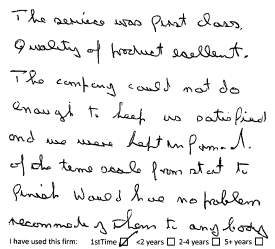 The service was first class.
Quality of product exellent.
The company could not do
enough to keep us satisfied
and we were kept informed.
of the time scale from start to
finish Would have no problem
recommending them to any body
I have used this firm: 1stTime ☑ <2 years ☐ 2-4 years ☐ 5+ years ☐